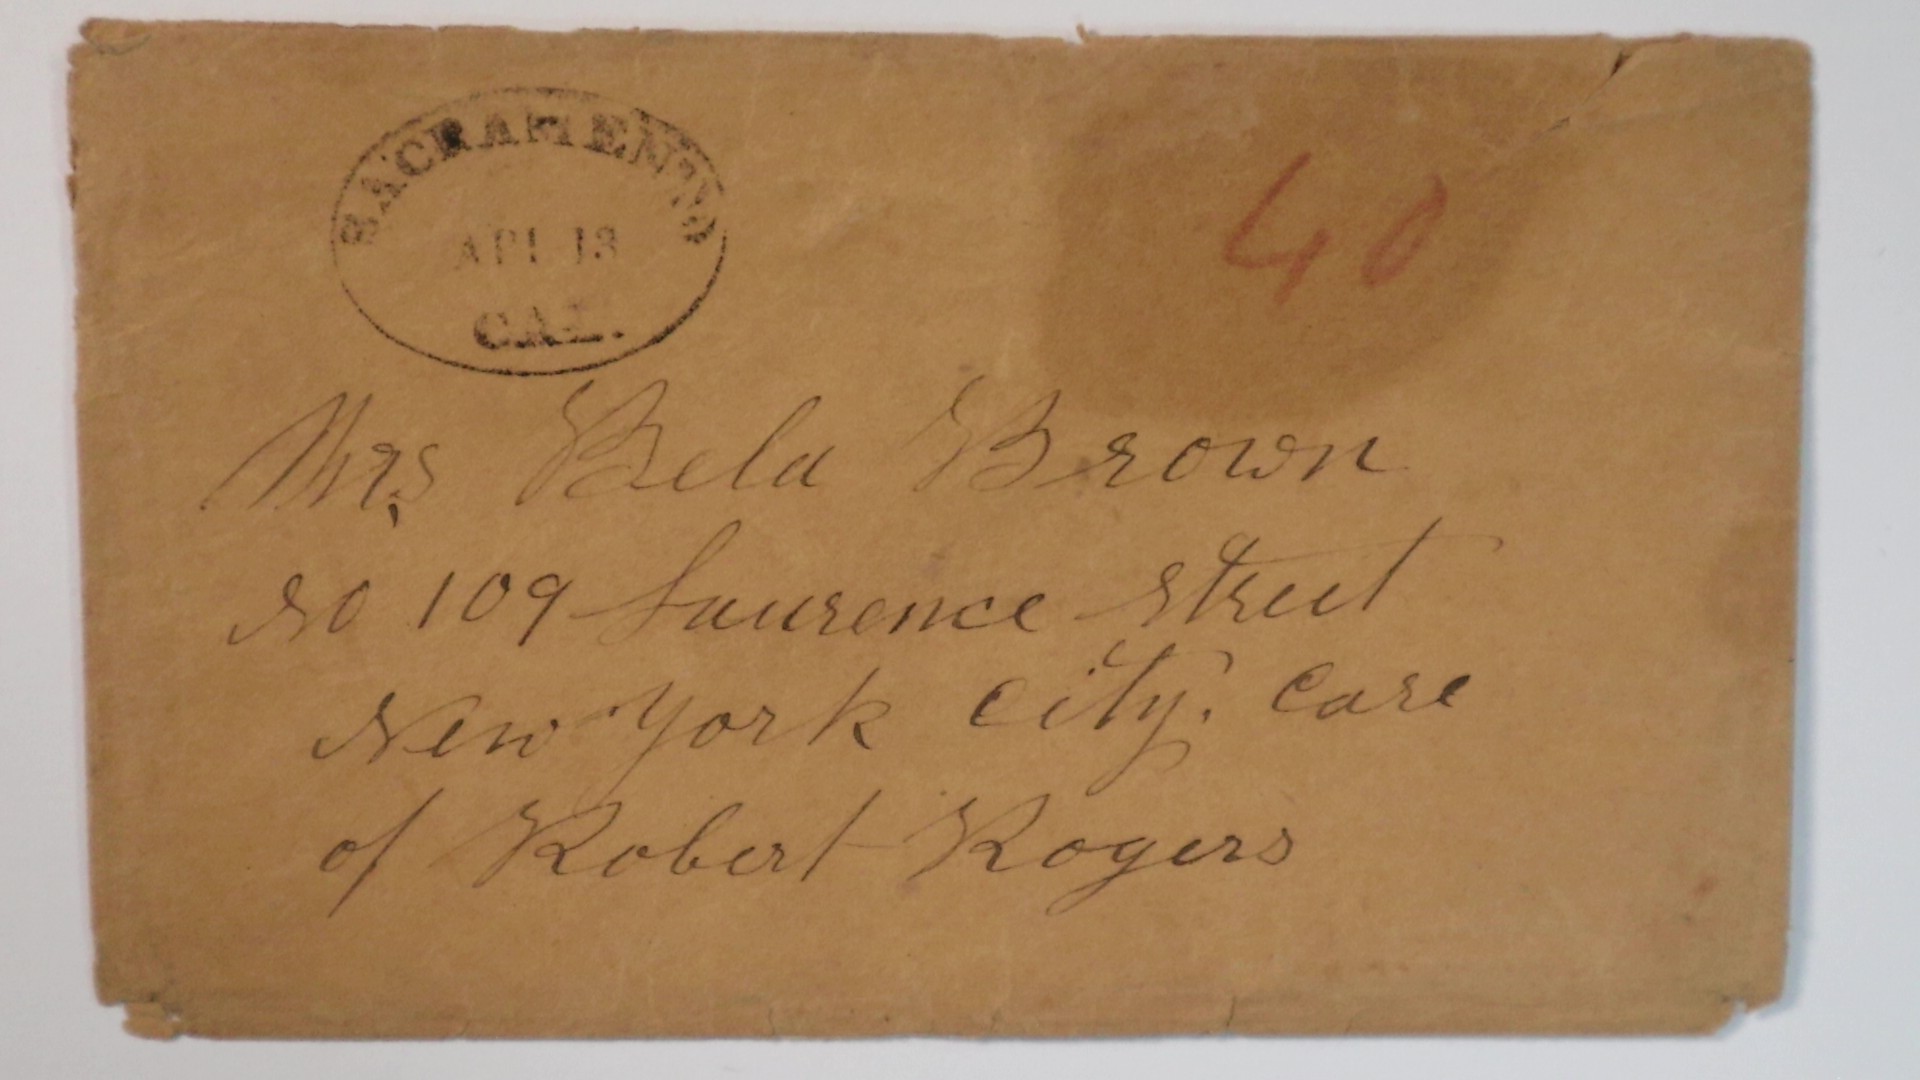 SACRAMENTO
APR 13
CAL.
40
Mrs Bela Brown
No 109 Laurence Street
New York City. Care
of Robert Rogers